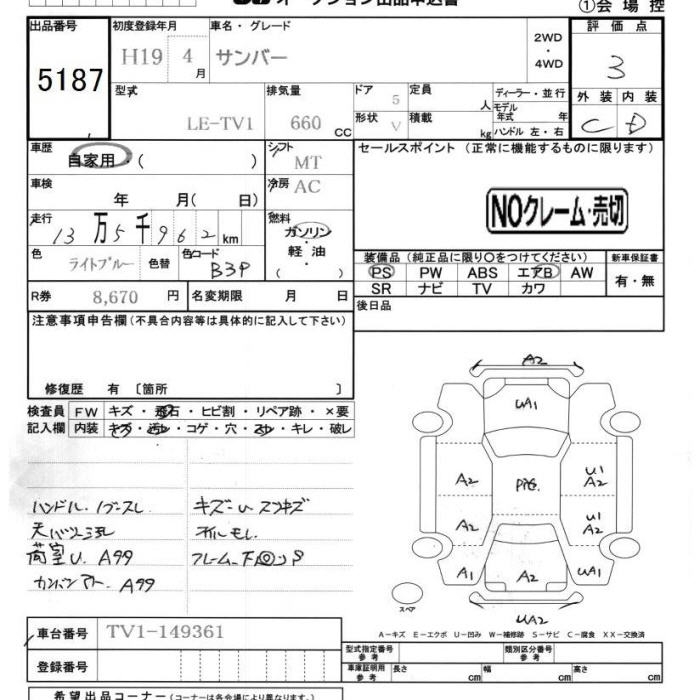 オークション出品申込書
①会場控
出品番号
5187
初度登録年月
H19 4月
車名・グレード
サンバー
2WD
・
4WD
評価点
3
外装 内装
C D
型式
LE-TV1
排気量
660 CC
ドア
5
形状
V
定員
人
積載
kg
ディーラー・並行
モデル
年式 年
ハンドル 左・右
車歴
自家用・( )
シフト
MT
車検
年 月( 日)
冷房
AC
走行
13万5千962km
燃料
ガソリン
・
軽油
( )
色
ライトブルー
色替
色コード
B3P
R券
8,670 円
名変期限 月 日
セールスポイント (正常に機能するものに限ります)
NOクレーム・売切
装備品(純正品に限り○をつけてください)
PS PW ABS エアB AW
SR ナビ TV カワ
新車保証書
有・無
後日品
注意事項申告欄(不具合内容等は具体的に記入して下さい)
修復歴 有 〔箇所 〕
検査員
記入欄
FW キズ・飛石・ヒビ割・リペア跡・×要
内装 キズ・汚レ・コゲ・穴・スレ・キレ・破レ
ハンドル、ノブスレ
荷室U、A99
A99
キズ～U
オイルモレ
A2
UA1
A2
A2
U1
A2
U1
A2
A1
A2
UA1
UA2
スペア
A-キズ E-エクボ U-凹み W-補修跡 S-サビ C-腐食 XX-交換済
車台番号
TV1-149361
登録番号
型式指定番号
参考
類別区分番号
参考
車庫証明用
参考
長さ cm
幅 cm
高さ cm
希望出品コーナー(コーナーは各会場により異なります。)